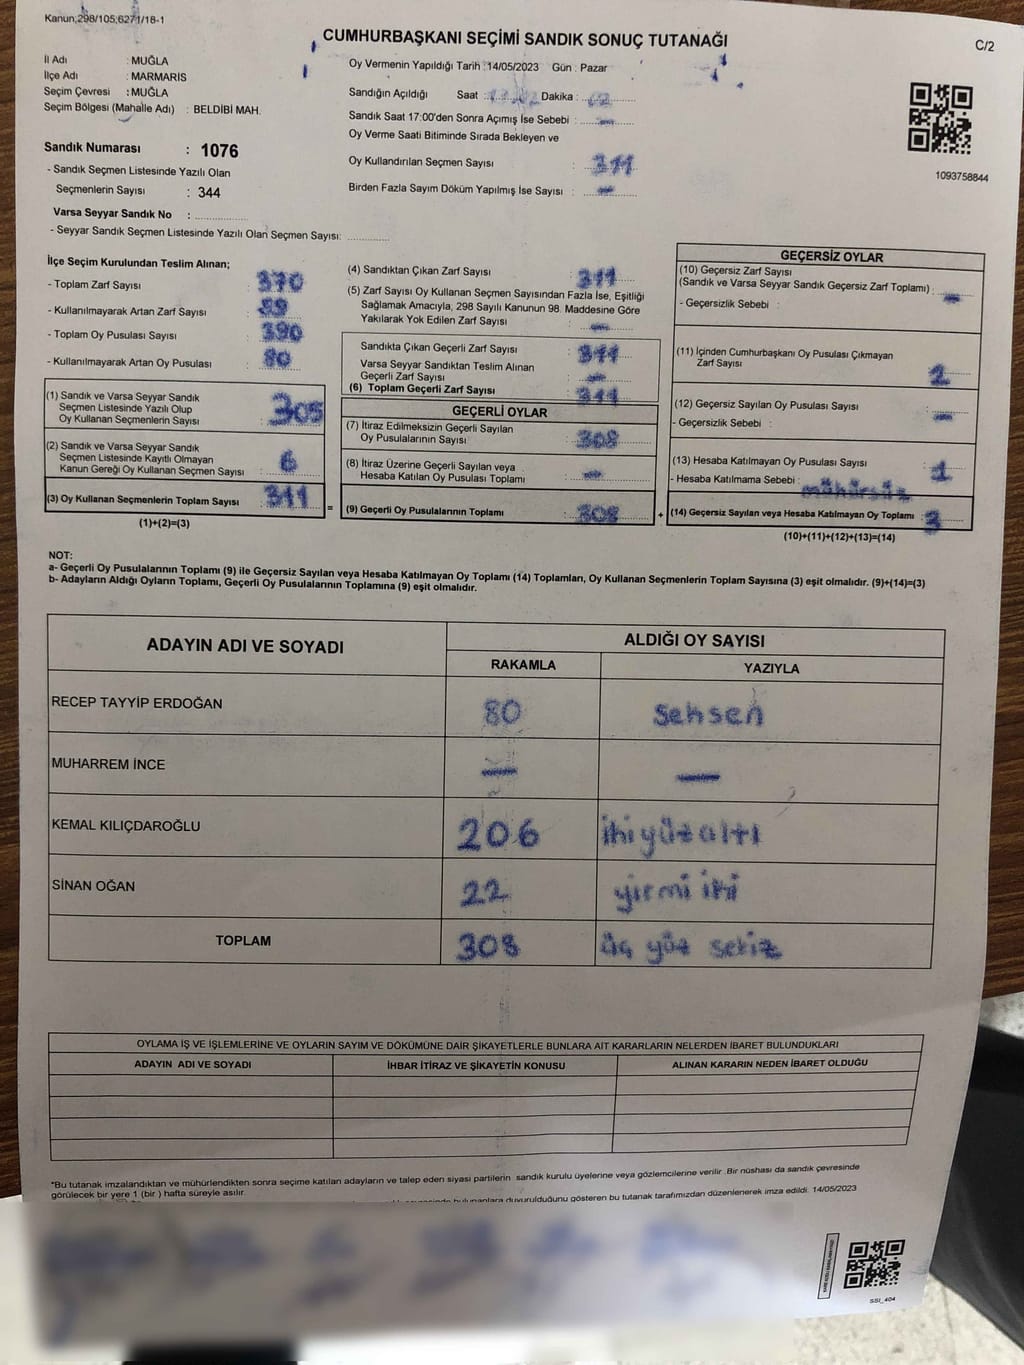 Kanun;298/105,6271/18-1
CUMHURBAŞKANI SEÇİMİ SANDIK SONUÇ TUTANAĞI
C/2
İl Adı : MUĞLA
İlçe Adı : MARMARİS
Seçim Çevresi : MUĞLA
Seçim Bölgesi (Mahalle Adı) : BELDİBİ MAH.
Sandık Numarası : 1076
- Sandık Seçmen Listesinde Yazılı Olan
Seçmenlerin Sayısı : 344
Varsa Seyyar Sandık No :
- Seyyar Sandık Seçmen Listesinde Yazılı Olan Seçmen Sayısı:
Oy Vermenin Yapıldığı Tarih :14/05/2023 Gün : Pazar
Sandığın Açıldığı Saat : Dakika :
Sandık Saat 17:00'den Sonra Açımış İse Sebebi : —
Oy Verme Saati Bitiminde Sırada Bekleyen ve
Oy Kullandırılan Seçmen Sayısı : 311
Birden Fazla Sayım Döküm Yapılmış İse Sayısı : —
1093758844
İlçe Seçim Kurulundan Teslim Alınan;
- Toplam Zarf Sayısı : 370
- Kullanılmayarak Artan Zarf Sayısı : 59
- Toplam Oy Pusulası Sayısı : 390
- Kullanılmayarak Artan Oy Pusulası : 80
(1) Sandık ve Varsa Seyyar Sandık
Seçmen Listesinde Yazılı Olup
Oy Kullanan Seçmenlerin Sayısı : 305
(2) Sandık ve Varsa Seyyar Sandık
Seçmen Listesinde Kayıtlı Olmayan
Kanun Gereği Oy Kullanan Seçmen Sayısı : 6
(3) Oy Kullanan Seçmenlerin Toplam Sayısı : 311 =
(1)+(2)=(3)
(4) Sandıktan Çıkan Zarf Sayısı : 311
(5) Zarf Sayısı Oy Kullanan Seçmen Sayısından Fazla İse, Eşitliği
Sağlamak Amacıyla, 298 Sayılı Kanunun 98. Maddesine Göre
Yakılarak Yok Edilen Zarf Sayısı : —
Sandıkta Çıkan Geçerli Zarf Sayısı : 311
Varsa Seyyar Sandıktan Teslim Alınan
Geçerli Zarf Sayısı : —
(6) Toplam Geçerli Zarf Sayısı : 311
GEÇERLİ OYLAR
(7) İtiraz Edilmeksizin Geçerli Sayılan
Oy Pusulalarının Sayısı : 308
(8) İtiraz Üzerine Geçerli Sayılan veya
Hesaba Katılan Oy Pusulası Toplamı : —
(9) Geçerli Oy Pusulalarının Toplamı : 308 +
GEÇERSİZ OYLAR
(10) Geçersiz Zarf Sayısı
(Sandık ve Varsa Seyyar Sandık Geçersiz Zarf Toplamı) : —
- Geçersizlik Sebebi :
(11) İçinden Cumhurbaşkanı Oy Pusulası Çıkmayan
Zarf Sayısı : 2
(12) Geçersiz Sayılan Oy Pusulası Sayısı : —
- Geçersizlik Sebebi :
(13) Hesaba Katılmayan Oy Pusulası Sayısı : 1
- Hesaba Katılmama Sebebi : mühürsüz
(14) Geçersiz Sayılan veya Hesaba Katılmayan Oy Toplamı : 3
(10)+(11)+(12)+(13)=(14)
NOT:
a- Geçerli Oy Pusulalarının Toplamı (9) ile Geçersiz Sayılan veya Hesaba Katılmayan Oy Toplamı (14) Toplamları, Oy Kullanan Seçmenlerin Toplam Sayısına (3) eşit olmalıdır. (9)+(14)=(3)
b- Adayların Aldığı Oyların Toplamı, Geçerli Oy Pusulalarının Toplamına (9) eşit olmalıdır.
ADAYIN ADI VE SOYADI ALDIĞI OY SAYISI
RAKAMLA YAZIYLA
RECEP TAYYİP ERDOĞAN 80 Seksen
MUHARREM İNCE — —
KEMAL KILIÇDAROĞLU 206 iki yüz altı
SİNAN OĞAN 22 yirmi iki
TOPLAM 308 üç yüz sekiz
OYLAMA İŞ VE İŞLEMLERİNE VE OYLARIN SAYIM VE DÖKÜMÜNE DAİR ŞİKAYETLERLE BUNLARA AİT KARARLARIN NELERDEN İBARET BULUNDUKLARI
ADAYIN ADI VE SOYADI İHBAR İTİRAZ VE ŞİKAYETİN KONUSU ALINAN KARARIN NEDEN İBARET OLDUĞU
*Bu tutanak imzalandıktan ve mühürlendikten sonra seçime katılan adayların ve talep eden siyasi partilerin sandık kurulu üyelerine veya gözlemcilerine verilir .Bir nüshası da sandık çevresinde
görülecek bir yere 1 (bir ) hafta süreyle asılır.
bulunanlara duyurulduğunu gösteren bu tutanak tarafımızdan düzenlenerek imza edildi. 14/05/2023
SSI_404